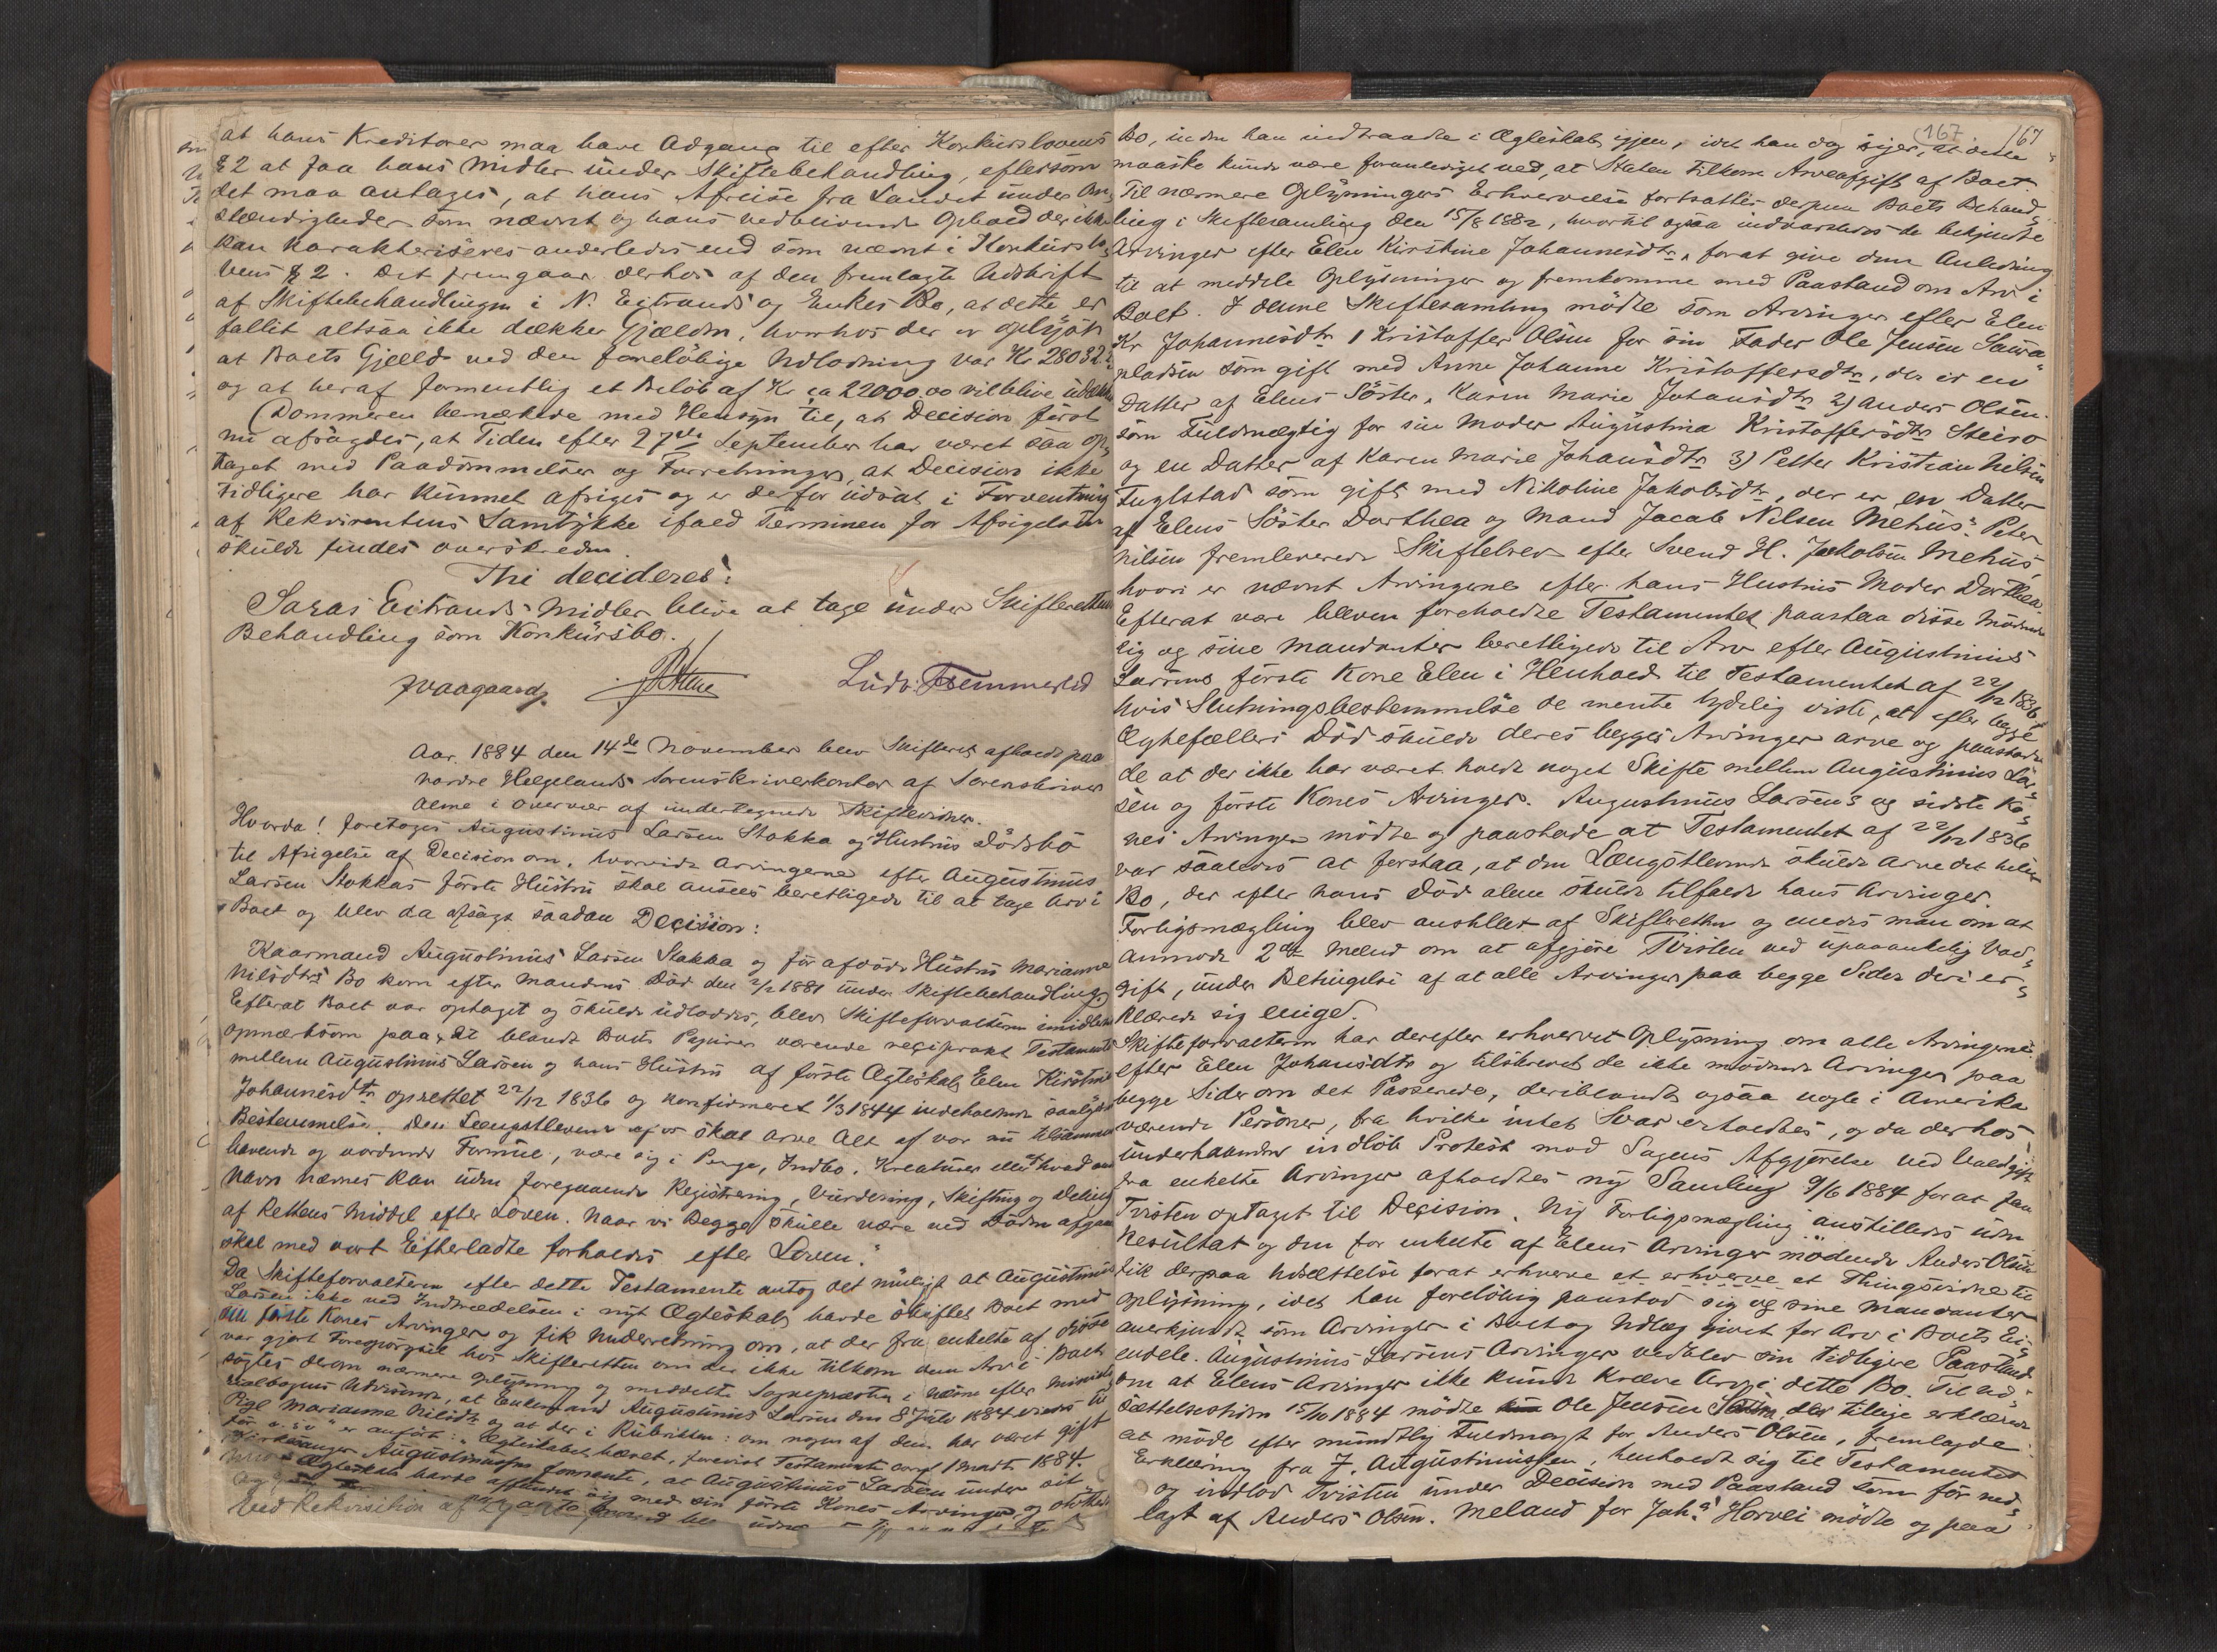 at hans Kreditorer maa have Adgang til efter Konkurslovens
§ 2 at faa hans Midler under Skiftebehandling, eftersom
det maa antages, at hans Afreise fra Landet under Om-
stændigheder som nævnt og hans vedblivende Ophold der ikke
kan karakteriseres anderledes end som nævnt i Konkurslo-
vens § 2. Det fremgaar derhos af den fremlagte Udskrift
af Skiftebehandlingen i N. Eitrands og Enkes Bo, at dette er
fallit altsaa ikke dækker Gjælden, hvorhos der er oplyst
at Boets Gjæld ved den foreløbige Udlodning var Kr 28032
og at heraf formentlig et Beløb af Kr ca 22000.00 vil blive udækket
(Dommeren bemærkede med Hensyn til, at Decision først
nu afsagdes, at Tiden efter 27de September har været saa op-
taget med Paadømmelser og Forretninger, at Decision ikke
tidligere har kunnet afsiges og er derfor udsat i Forventning
af Rekvirentens Samtykke ifald Terminen for Afsigelsen
skulde findes overskreden.
Thi decideres:
Saras Eitrands Midler blive at tage under Skifterettens
Behandling som Konkursbo.
Ludv. Temmerlid
Aar 1884 den 14de November blev Skifteret afholdt paa
nordre Helgelands Sorenskriverkontor af Sorenskriver
Alme i Overvær af undertegnede Skiftevidner.
Hvorda! foretages Augustinus Larsen Stokka og Hustrus Dødsbo
til Afsigelse af Decision om, hvorvidt Arvingerne efter Augustinus
Larsen Stokkas første Hustru skal ansees berettigede til at tage Arv i
Boet og blev da afsagt saadan Decision:
Kaarmand Augustinus Larsen Stokka og før afdøde Hustru Marianne
Nilsdtrs Bo kom efter Mandens Død den 2/2 1881 under Skiftebehandling.
Efterat Boet var optaget og skulde udloddes, blev Skifteforvalteren imidlertid
opmærksom paa et blandt Boets Papirer værende reciprokt Testamente
mellem Augustinus Larsen og hans Hustru af første Ægteskab Elen Kirstine
Johannesdtr oprettet 22/12 1836 og konfirmeret 1/3 1844 indeholdende saalydende
Bestemmelse. Den Længstlevende af os skal arve Alt af vor nu tilsammen
havende og vordende Formue, være sig i Penge, Indbo, Kreaturer eller hvad
Navn nævnes kan uden foregaaende Registrering, Vurdering, Skifting og Deling
af Rettens Middel efter Loven. Naar vi Begge skulle være ved Døden afgaaet
skal med vort Efterladte forholdes efter Loven."
Da Skifteforvalteren efter dette Testamente antog det muligt at Augustinus
Larsen ikke ved Indtrædelsen i nyt Ægteskab havde skiftet Boet med
den første Kones Arvinger og fik Underretning om, at der fra enkelte af disse
var gjort Forespørgsel hos Skifteretten om der ikke tilkom dem Arv i Boet
søgtes derom nærmere Oplysning og meddelte Sognepræsten i Herø efter Ministe-
rialbogens Udvisende, at Enkemand Augustinus Larsen den 8 Juli 1884 viedes til
Pige Marianne Nilsdtr og at der i Rubrikken: om nogen af dem har været gift
før o. s. v." er anført: "Ægteskabet hævet, forevist Testamente conf 1 Marts 1884.
Augustinussen formente, at Augustinus Larsen under sit
Ægteskab havde affundet sig med sin første Kones Arvinger og
Ved Rekvisition af
167
167
Bo, inden han indtraadte i Ægteskab igjen, idet han dog siger, at dette
maaske kunde være foranlediget ved, at Staten tilkom Arveafgift af Boet.
Til nærmere Oplysningers Erhvervelse fortsattes derpaa Boets Behand-
ling i Skiftesamling den 15/8 1882, hvortil ogsaa indvarsledes de bekjendte
Arvinger efter Elen Kirstine Johannesdtr, forat give dem Anledning
til at meddele Oplysninger og fremkomme med Paastand om Arv i
Boet. I denne Skiftesamling mødte som Arvinger efter Elen
Kr Johannesdtr 1 Kristoffer Olsen for sin Fader Ole Jensen Saura
pladsen som gift med Anne Johanne Kristoffersdtr, der er en
Datter af Elens Søster, Karen Marie Johansdtr 2) Anders Olsen
som Fuldmægtig for sin Moder Augustina Kristoffersdtr Steiro
og en Datter af Karen Marie Johansdtr 3) Petter Kristian Nilsen
Fuglstad som gift med Nikoline Jakobsdtr, der er en Datter
af Elens Søster Dorthea og Mand Jacob Nilsen Mehus". Peter
Nilsen fremleverede Skiftebrev efter Svend H. Jakobsen Mehus,
hvori er nævnt Arvingerne efter hans Hustrus Moder Dorthea.
Efterat være bleven foreholdte Testamentet paastaa disse Mødende
sig og sine Mandanter berettigede til Arv efter Augustinus
Larsens første Kone Elen i Henhold til Testamentet af 22/12 1836,
hvis Slutningsbestemmelse de mente tydelig viste, at efter begge
Ægtefællers Død skulde deres begges Arvinger arve og paastode
de at der ikke har været holdt noget Skifte mellem Augustinus Lar-
sen og første Kones Arvinger. Augustinus Larsens og sidste Ko-
nes Arvinger mødte og paastode at Testamentet af 22/12 1836
var saaledes at forstaa, at den Længstlevende skulde arve det hele
Bo, der efter hans Død alene skulde tilfalde hans Arvinger.
Forligsmægling blev anstillet af Skifteretten og enedes man om at
anmode 2de Mænd om at afgjøre Tvisten ved upaaankelig Vold-
gift, under Betingelse af at alle Arvinger paa begge Sider deri er-
klærede sig enige.
Skifteforvalteren har derefter erhvervet Oplysning om alle Arvingerne
efter Elen Johansdtr og tilskrevet de ikke mødende Arvinger paa
begge Sider om det Passerede, deriblandt ogsaa nogle i Amerika
værende Personer, fra hvilke intet Svar erholdtes, og da derhos
underhaanden indløb Protest mod Sagens Afgjørelse ved Voldgift
fra enkelte Arvinger afholdtes ny Samling 9/6 1884 forat faa
Tvisten optaget til Decision. Ny Forligsmægling anstilledes uden
Resultat og den for enkelte af Elens Arvinger mødende Anders Olsen
fik derpaa Udsættelse forat erhverve et erhverve et Thingsvidne til
Oplysning, idet han foreløbig paastod sig og sine Mandanter
anerkjendt som Arvinger i Boet og Udlæg givet for Arv i Boets Ei-
endele. Augustinus Larsens Arvinger vedblev sin tidligere Paastand
om at Elens Arvinger ikke kunde kræve Arv i dette Bo. Til Ud-
sættelsestiden 15/10 1884 mødte Ole Jensen der tillige erklærede
at møde efter mundtlig Fuldmagt for Anders Olsen, fremlagde
Erklæring fra J. Augustinussen, henholdt sig til Testamentet
og indlod Tvisten under Decision med Paastand som før ned-
lagt af Anders Olsen. Meland for Johs Horvei mødte og paa